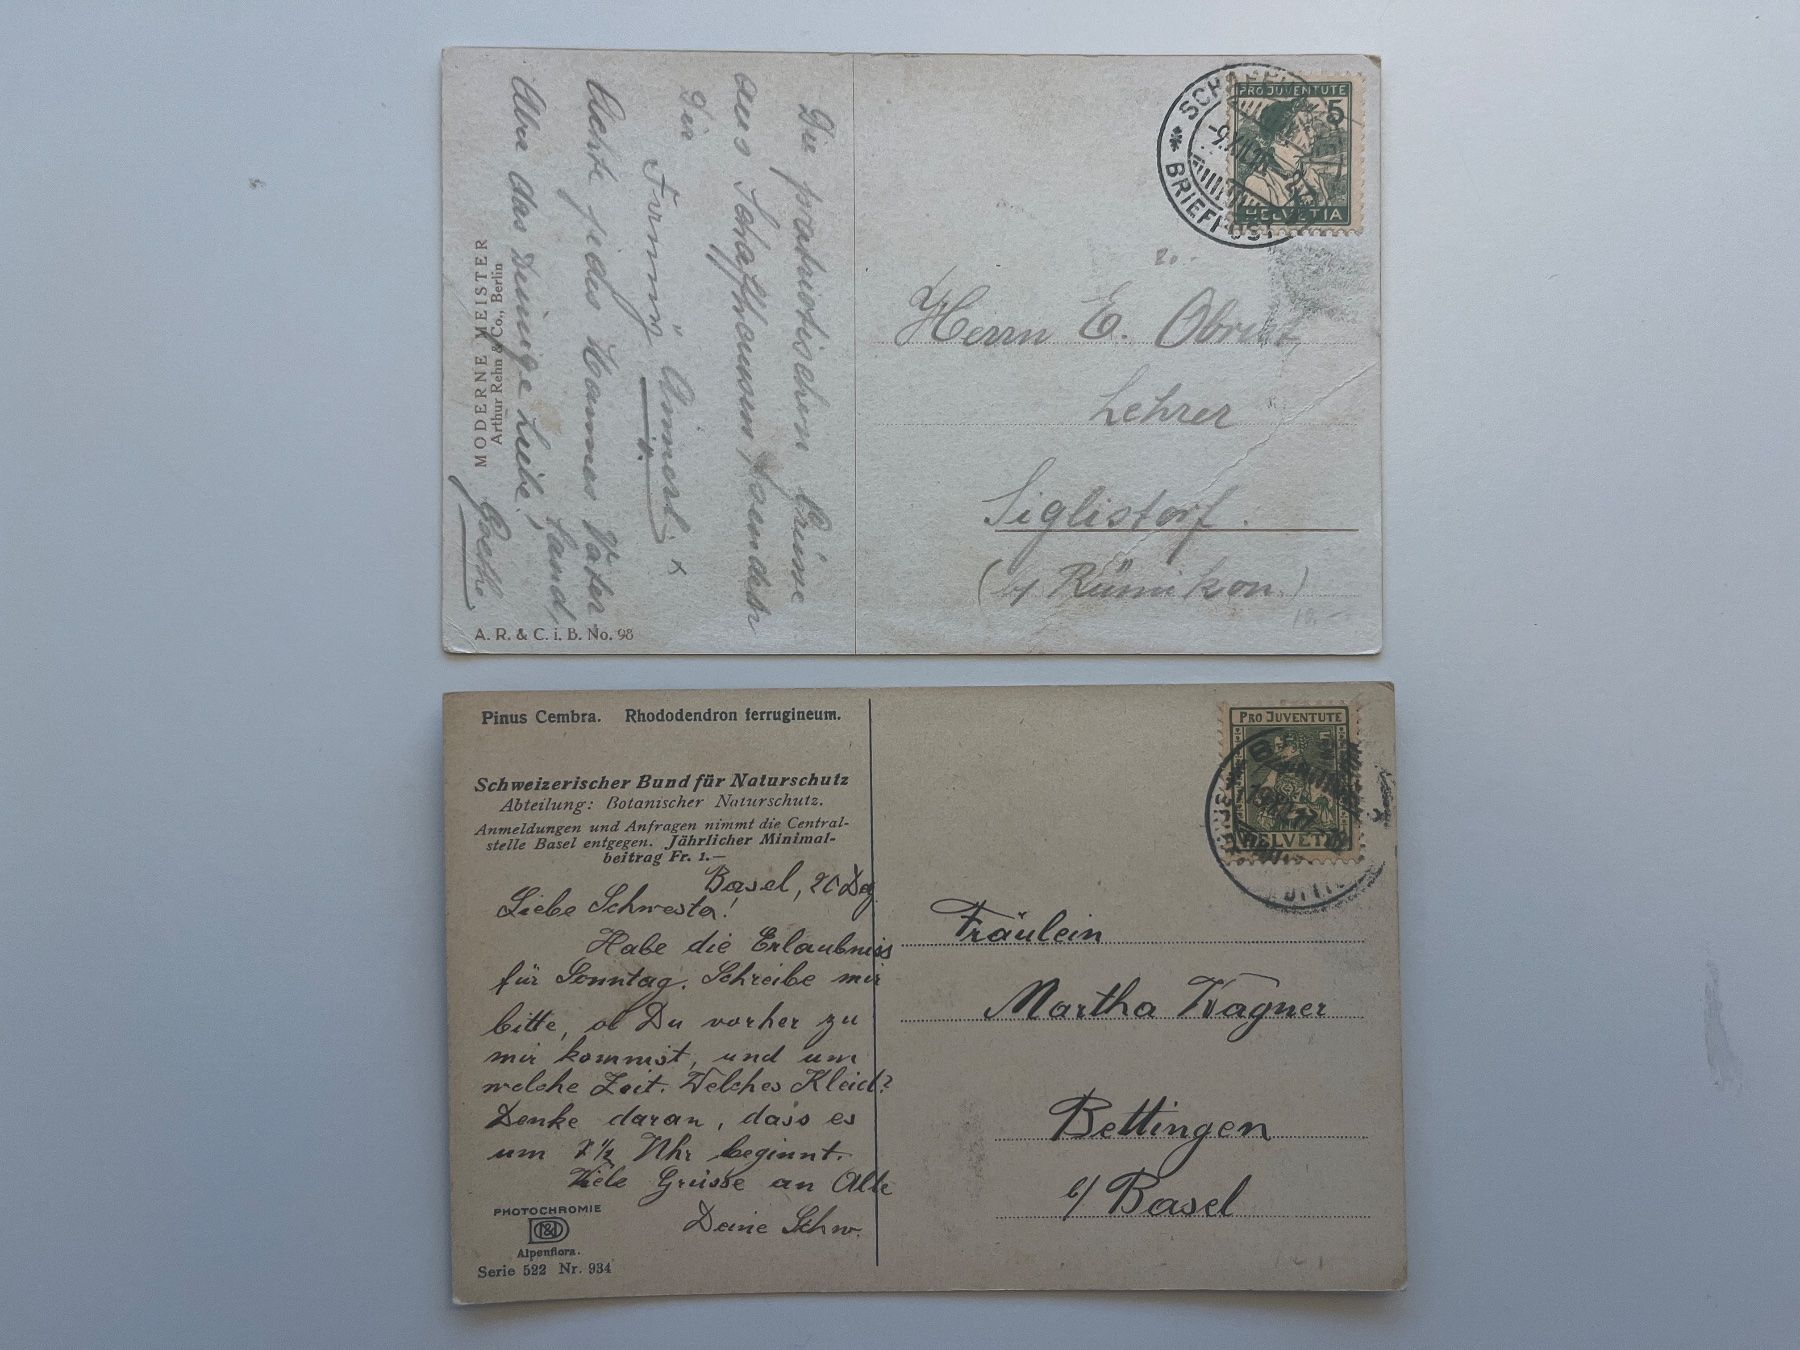 PRO JUVENTUTE
5
HELVETIA
BRIEFPOST
20.-
Herrn E.
Lehrer
Siglistorf.
(b/ Rümikon.)
10.—
Die patriotischen Grüsse
aus Schaffhausen, sendet
Dir
Achte jedes Mannes Vater-
land,
Aber das Deinige Liebe!
Goethe.
MODERNE MEISTER
Arthur Rehn & Co., Berlin
A. R. & C. i. B. No. 98
Pinus Cembra. Rhododendron ferrugineum.
Schweizerischer Bund für Naturschutz
Abteilung: Botanischer Naturschutz.
Anmeldungen und Anfragen nimmt die Central-
stelle Basel entgegen. Jährlicher Minimal-
beitrag Fr. 1.—
Basel, 20 Dez.
Liebe Schwester!
Habe die Erlaubniss
für Sonntag. Schreibe mir
bitte, ob Du vorher zu
mir kommst, und um
welche Zeit. Welches Kleid?
Denke daran, dass es
um 7 1/2 Uhr beginnt.
Viele Grüsse an Alle
Deine Schw.
PHOTOCHROMIE
Alpenflora.
Serie 522 Nr. 934
PRO JUVENTUTE
5
HELVETIA
Fräulein
Martha Wagner
Bettingen
b/ Basel